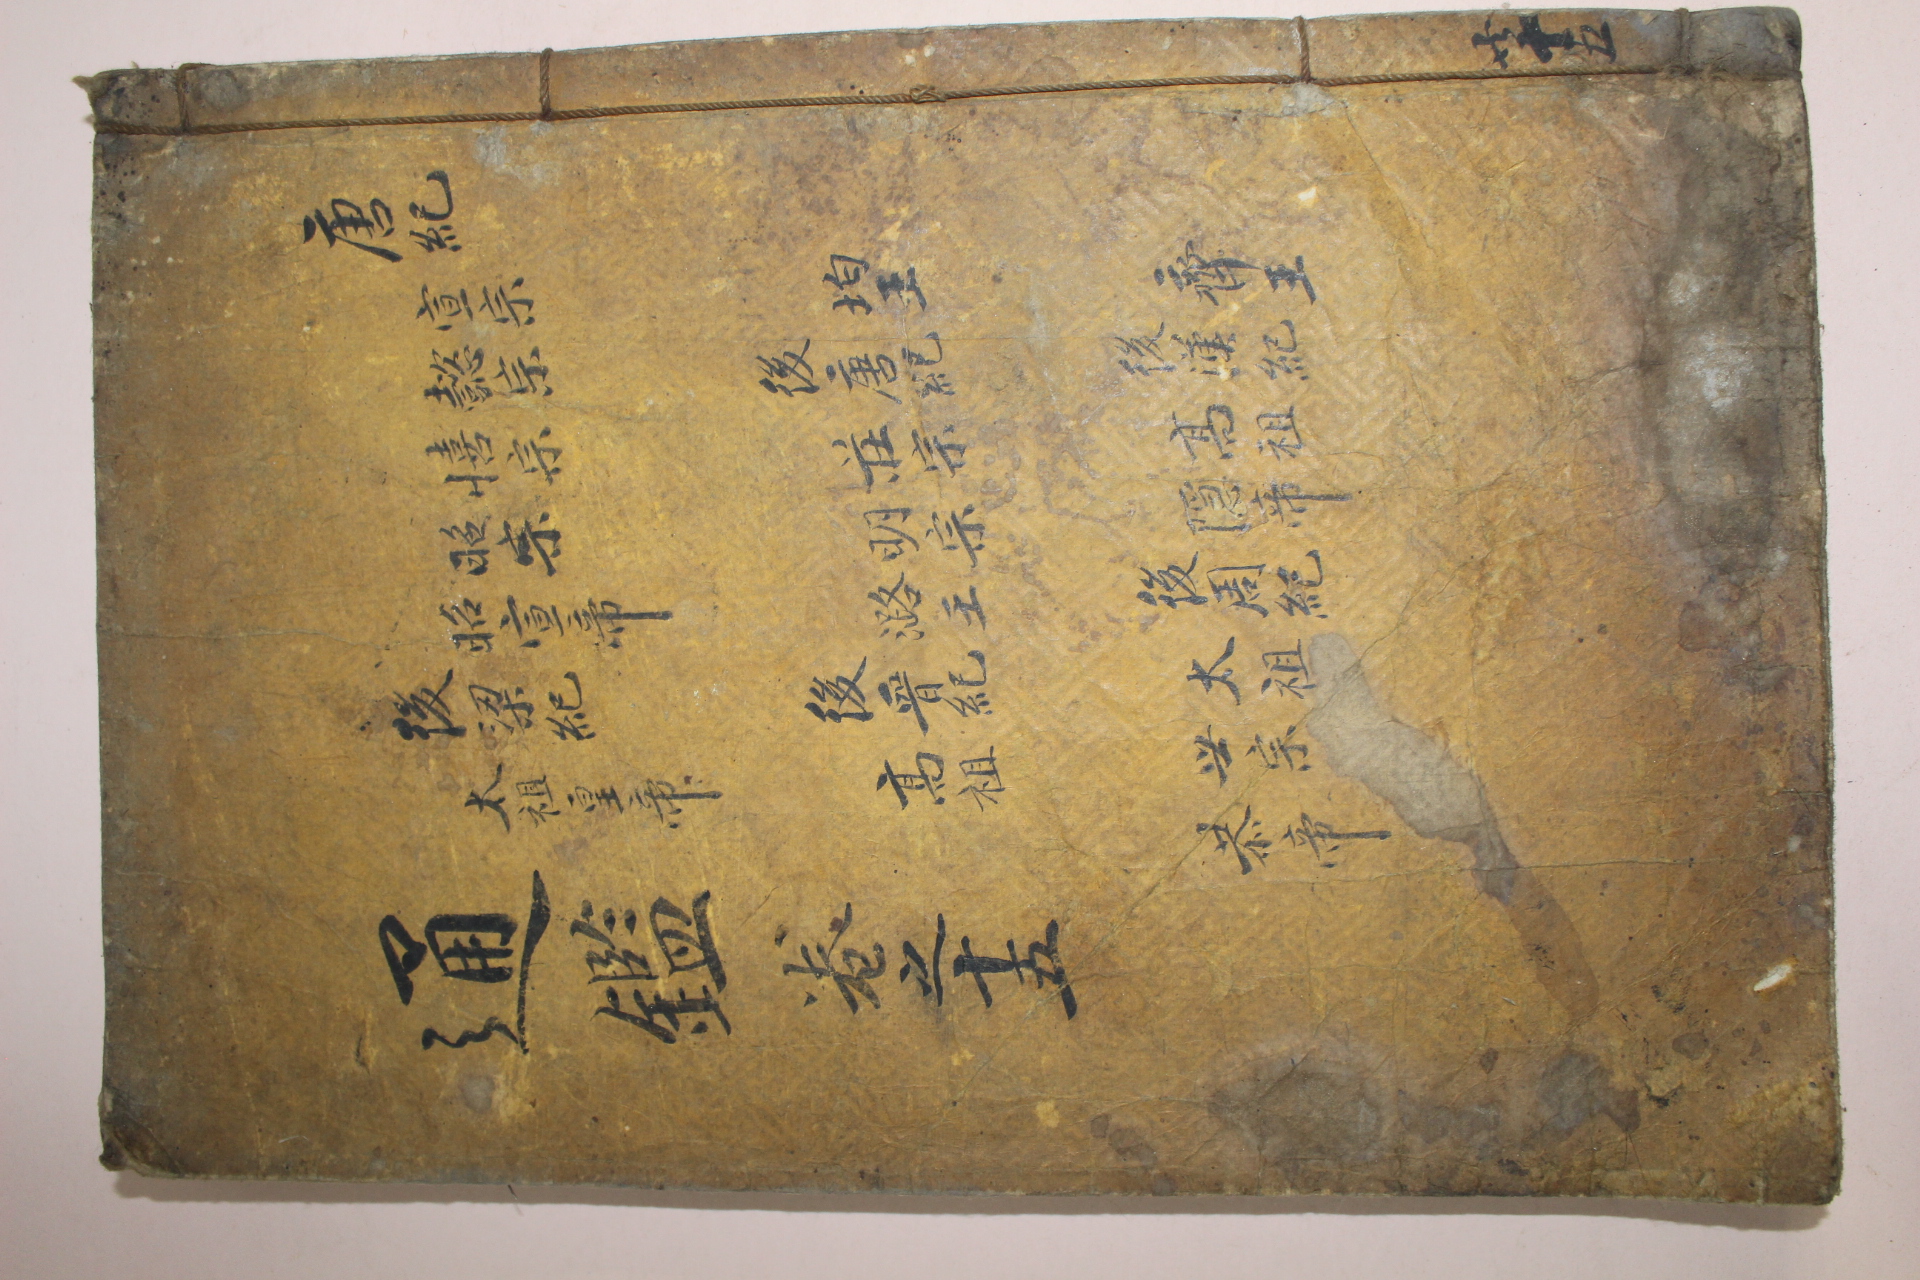 共十五
唐紀
宣宗
懿宗
僖宗
昭宗
昭宣帝
後梁紀
太祖皇帝
均王
後唐紀
莊宗
明宗
潞王
後晉紀
高祖
齊王
後漢紀
高祖
隱帝
後周紀
太祖
世宗
恭帝
通鑑 卷之十五